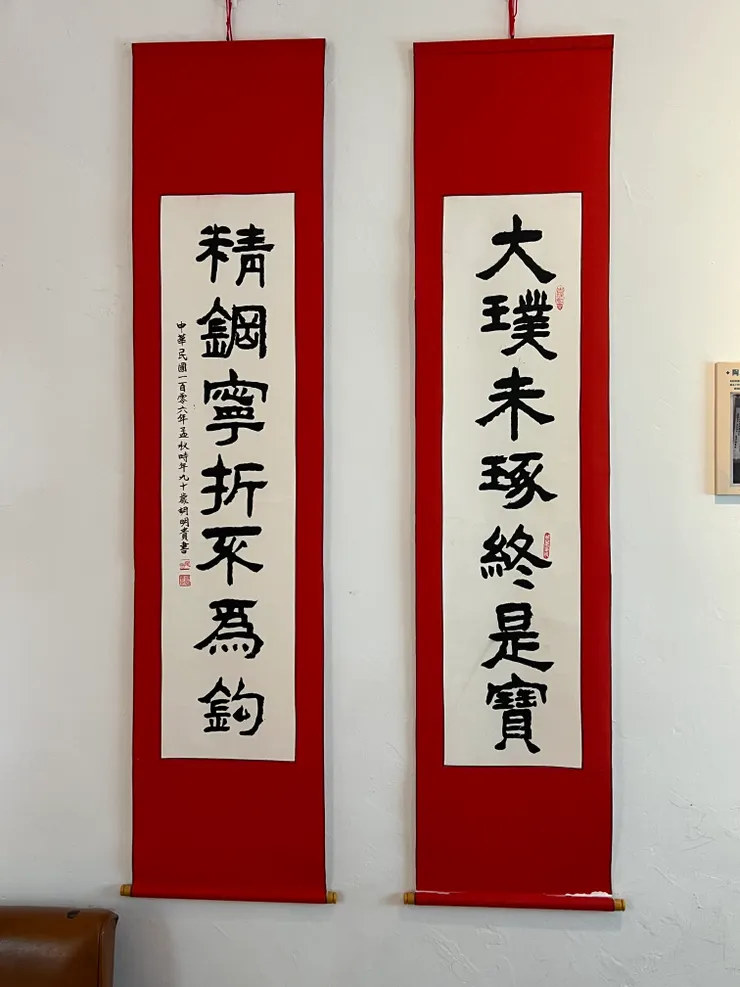 大璞未琢終是寶
精鋼寧折不為鈎
中華民國一百零六年孟秋時年九十歲胡明貴書